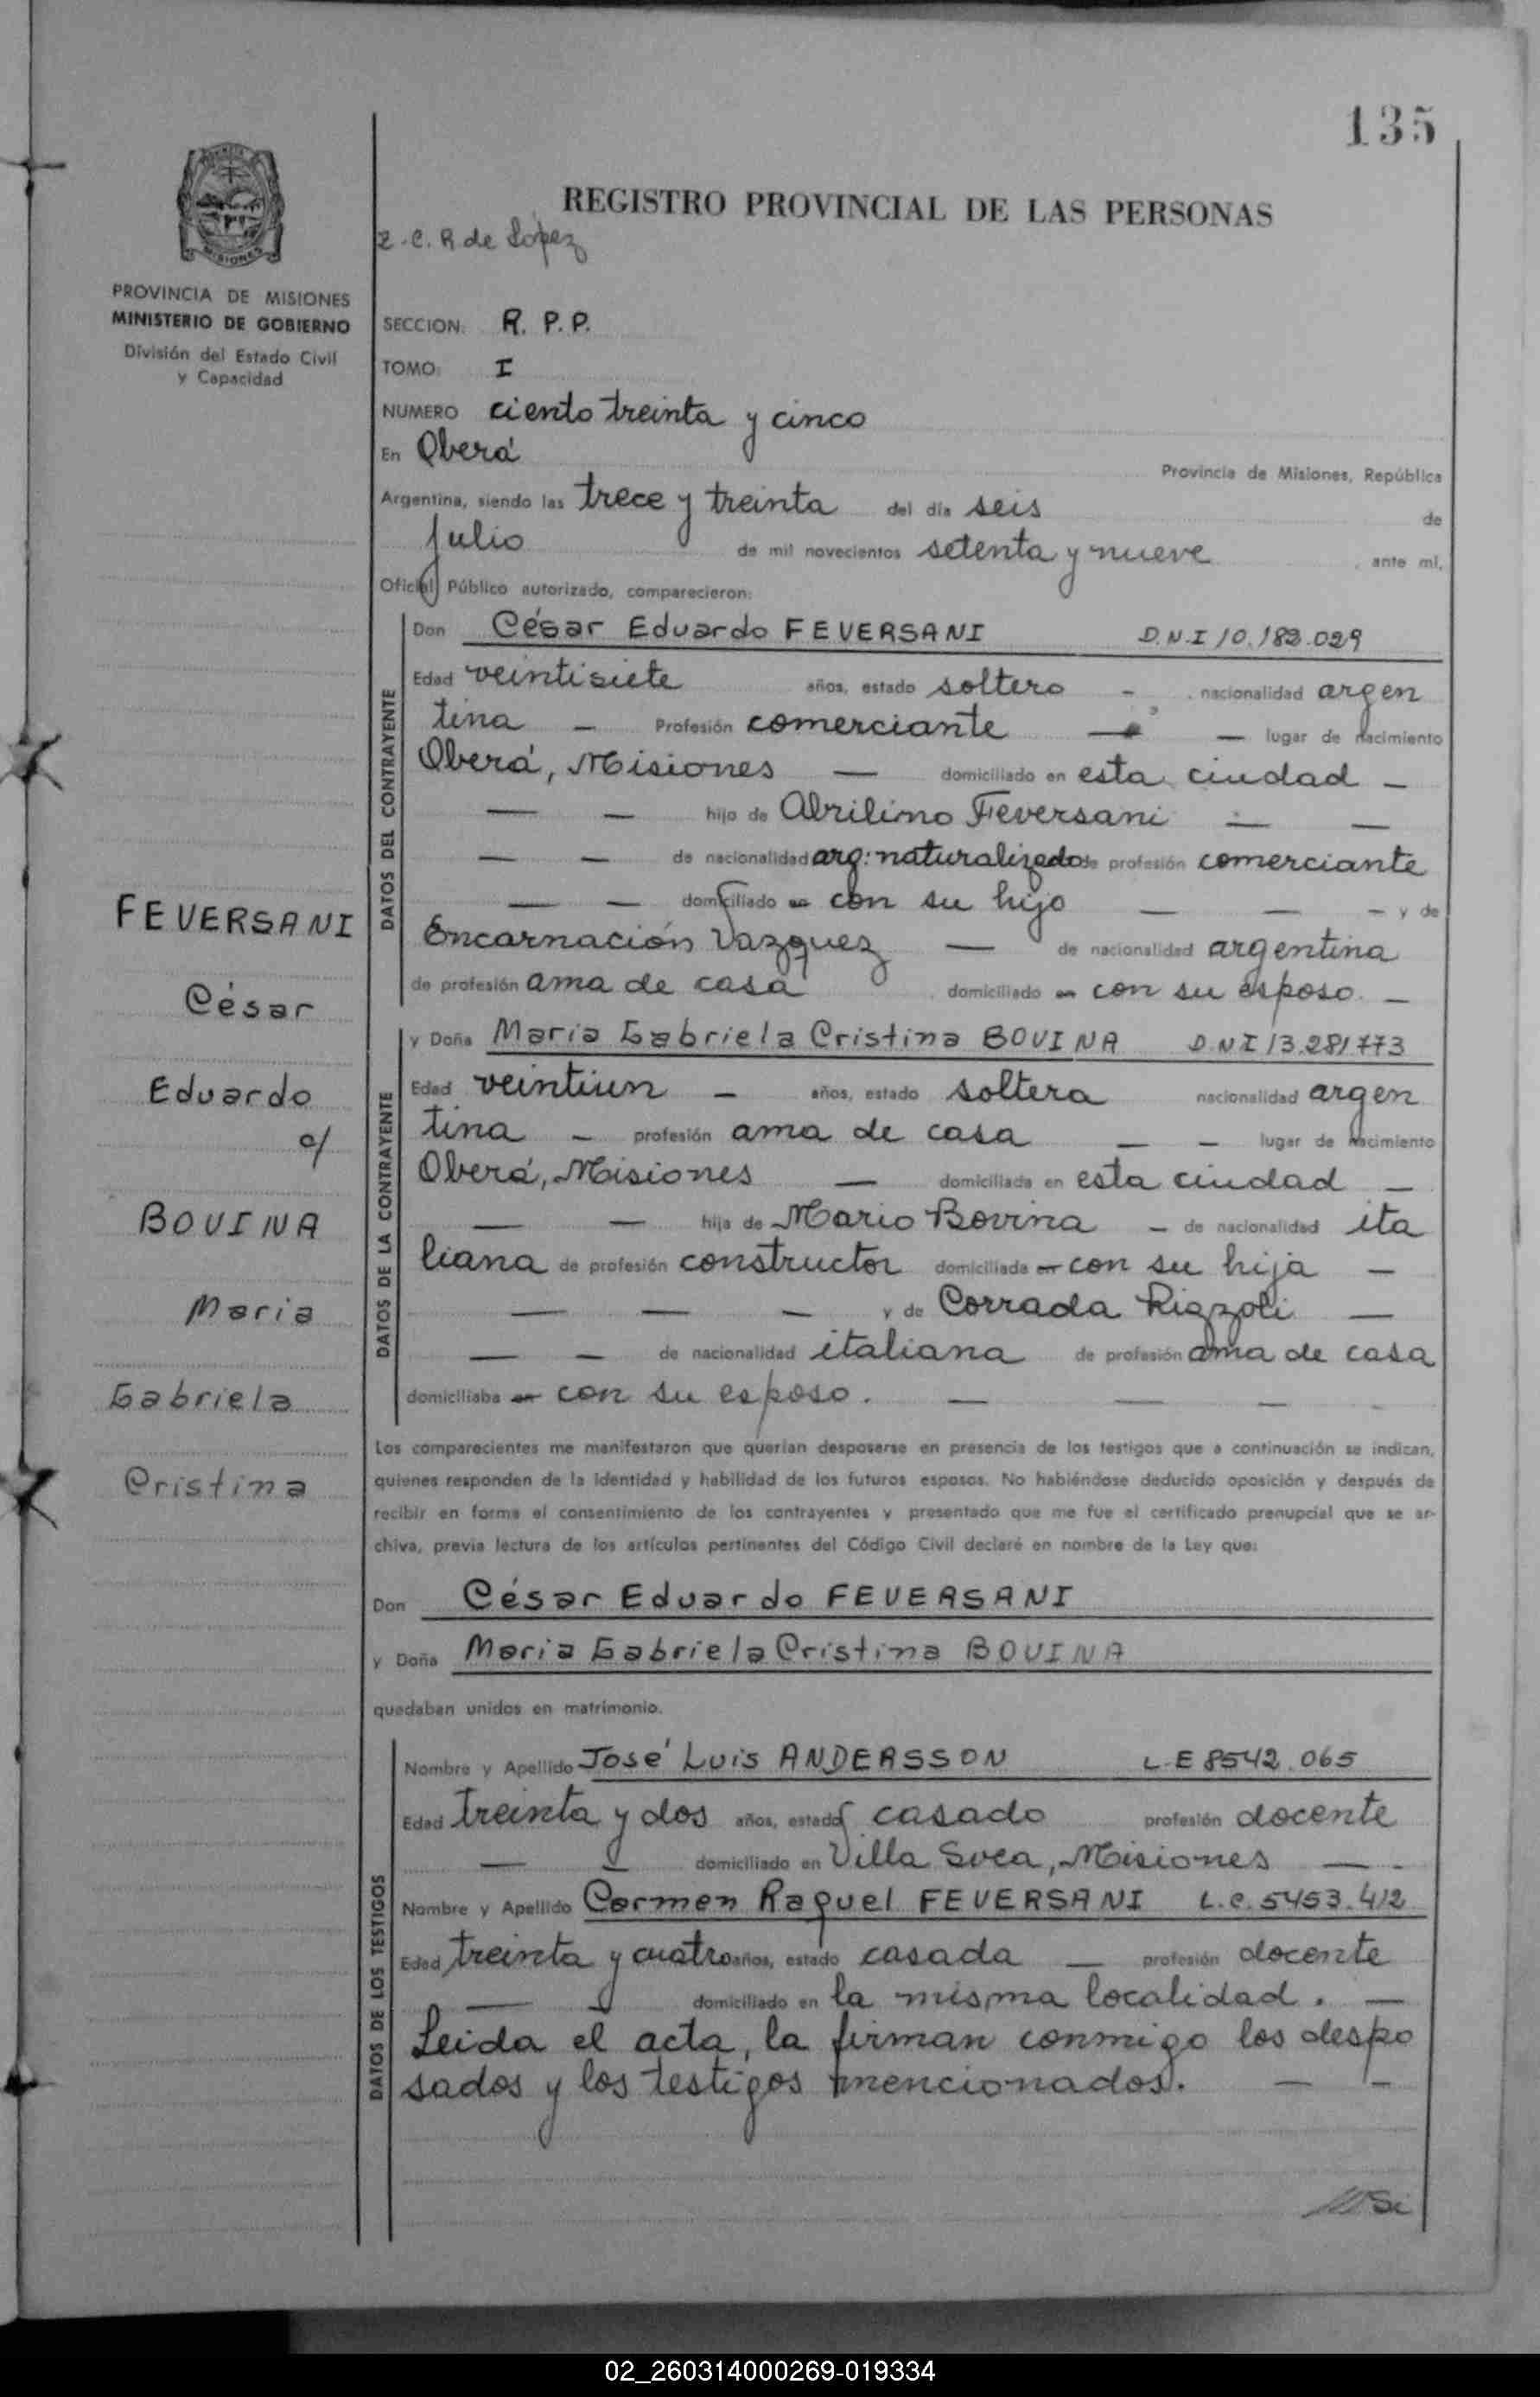 135
REGISTRO PROVINCIAL DE LAS PERSONAS
Z.C.R de López
MISIONES
PROVINCIA DE MISIONES
MINISTERIO DE GOBIERNO
División del Estado Civil
y Capacidad
SECCION: R. P. P.
TOMO: I
NUMERO ciento treinta y cinco
En Oberá Provincia de Misiones, República
Argentina, siendo las trece y treinta del día seis de
julio de mil novecientos setenta y nueve, ante mí,
Oficial Público autorizado, comparecieron:
DATOS DEL CONTRAYENTE
Don César Eduardo FEVERSANI D.N.I 10.183.029
Edad veintisiete años, estado soltero - nacionalidad argen
tina - Profesión comerciante — — lugar de nacimiento
Oberá, Misiones — domiciliado en esta ciudad -
— — hijo de Abrilino Feversani — —
— — de nacionalidad arg: naturalizado de profesión comerciante
— — domiciliado en con su hijo — — - y de
Encarnación Vazquez — de nacionalidad argentina
de profesión ama de casa domiciliado en con su esposo. -
DATOS DE LA CONTRAYENTE
y Doña Maria Gabriela Cristina BOVINA D.N.I 13.281.773
Edad veintiun - años, estado soltera nacionalidad argen
tina - profesión ama de casa — - lugar de nacimiento
Oberá, Misiones — domiciliada en esta ciudad -
— — hija de Mario Bovina - de nacionalidad ita
liana de profesión constructor domiciliada en con su hija -
— — - y de Corrada Rigzoli —
— - de nacionalidad italiana de profesión ama de casa
domiciliaba en con su esposo. — — -
FEVERSANI
César
Eduardo
c/
BOVINA
Maria
Gabriela
Cristina
Los comparecientes me manifestaron que querían desposarse en presencia de los testigos que a continuación se indican,
quienes responden de la identidad y habilidad de los futuros esposos. No habiéndose deducido oposición y después de
recibir en forma el consentimiento de los contrayentes y presentado que me fue el certificado prenupcial que se ar-
chiva, previa lectura de los artículos pertinentes del Código Civil declaré en nombre de la Ley que:
Don César Eduardo FEVERSANI
y Doña Maria Gabriela Cristina BOVINA
quedaban unidos en matrimonio.
DATOS DE LOS TESTIGOS
Nombre y Apellido José Luis ANDERSSON L.E 8542.065
Edad treinta y dos años, estado casado profesión docente
— - domiciliado en Villa Svea, Misiones — -
Nombre y Apellido Carmen Raquel FEVERSANI L.C. 5453.412
Edad treinta y cuatro años, estado casada — profesión docente
— - domiciliado en la misma localidad. —
Leida el acta, la firman conmigo los despo
sados y los testigos mencionados. — -
02_260314000269-019334